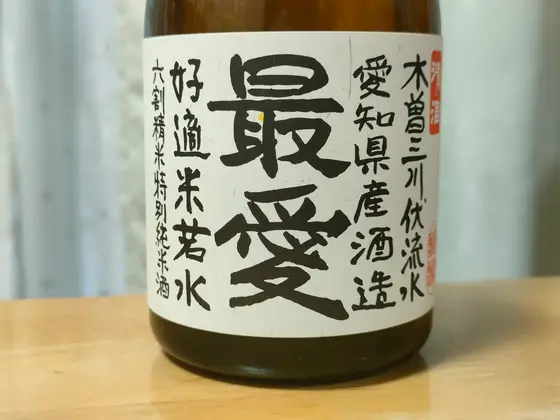 清酒
木曽三川伏流水
愛知県産酒造
好適米若水
最愛
六割精米特別純米酒